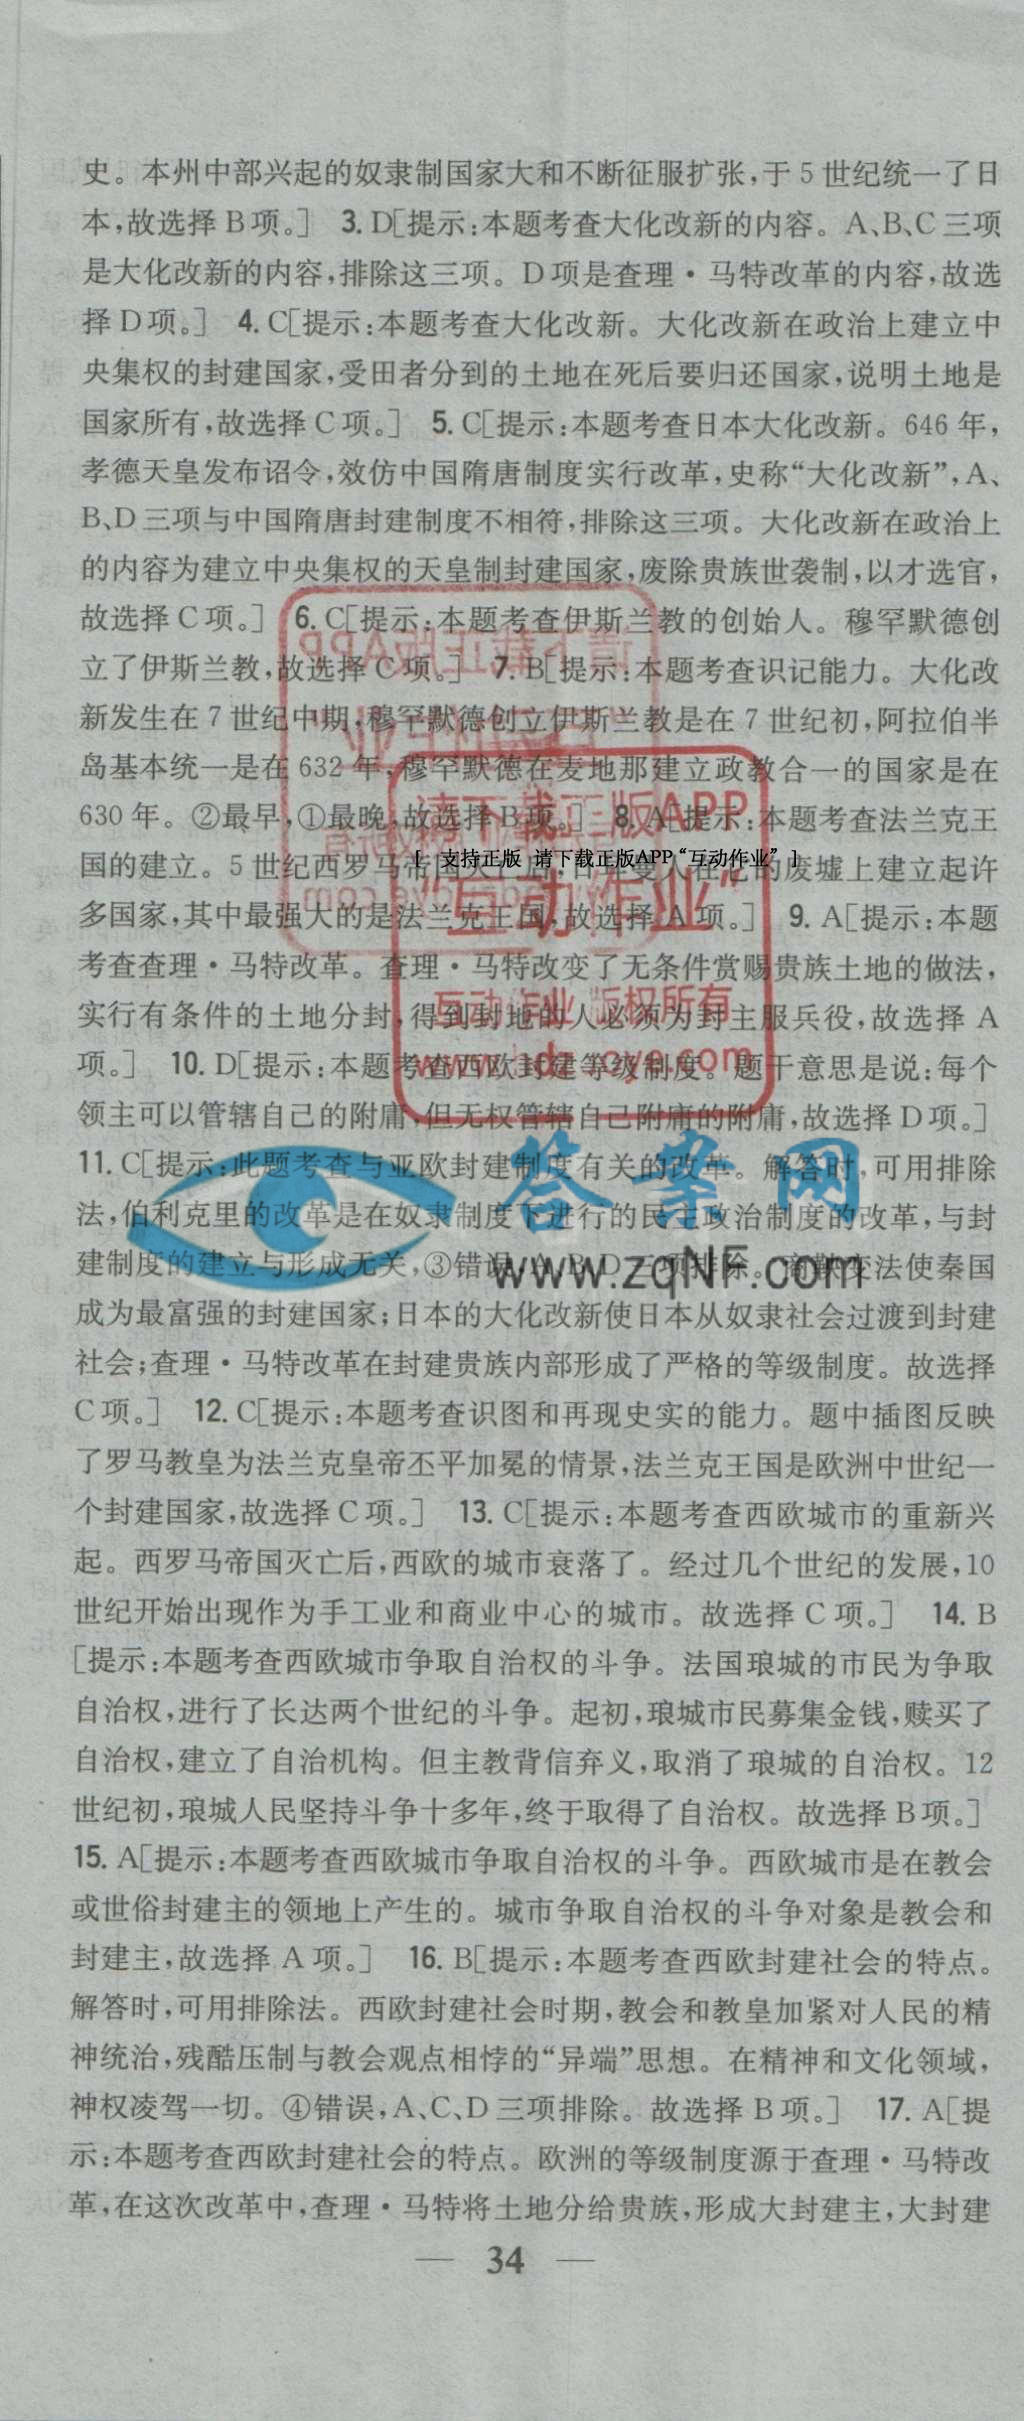 史。本州中部兴起的奴隶制国家大和不断征服扩张,于5世纪统一了日
本,故选择B项。] 3. D[提示:本题考查大化改新的内容。A、B、C三项
是大化改新的内容,排除这三项。D项是查理·马特改革的内容,故选
择D项。] 4. C[提示:本题考查大化改新。大化改新在政治上建立中
央集权的封建国家,受田者分到的土地在死后要归还国家,说明土地是
国家所有,故选择C项。] 5. C[提示:本题考查日本大化改新。646年,
孝德天皇发布诏令,效仿中国隋唐制度实行改革,史称“大化改新”,A、
B、D三项与中国隋唐封建制度不相符,排除这三项。大化改新在政治上
的内容为建立中央集权的天皇制封建国家,废除贵族世袭制,以才选官,
故选择C项。] 6. C[提示:本题考查伊斯兰教的创始人。穆罕默德创
立了伊斯兰教,故选择C项。] 7. B[提示:本题考查识记能力。大化改
新发生在7世纪中期,穆罕默德创立伊斯兰教是在7世纪初,阿拉伯半
岛基本统一是在632年,穆罕默德在麦地那建立政教合一的国家是在
630年。②最早,①最晚,故选择B项。] 8. A[提示:本题考查法兰克王
请下载正版APP
[ 支持正版 请下载正版APP“互动作业” ]
国的建立。5世纪西罗马帝国灭亡后,日耳曼人在它的废墟上建立起许
多国家,其中最强大的是法兰克王国,故选择A项。] 9. A[提示:本题
“互动作业”
考查查理·马特改革。查理·马特改变了无条件赏赐贵族土地的做法,
实行有条件的土地分封,得到封地的人必须为封主服兵役,故选择A
互动作业 版权所有
项。] 10. D[提示:本题考查西欧封建等级制度。题干意思是说:每个
领主可以管辖自己的附庸,但无权管辖自己附庸的附庸,故选择D项。]
11. C[提示:此题考查与亚欧封建制度有关的改革。解答时,可用排除
答案网
法,伯利克里的改革是在奴隶制度下进行的民主政治制度的改革,与封
建制度的建立与形成无关,③错误,A、B、D三项排除。商鞅变法使秦国
www.zqNF.com
成为最富强的封建国家;日本的大化改新使日本从奴隶社会过渡到封建
社会;查理·马特改革在封建贵族内部形成了严格的等级制度。故选择
C项。] 12. C[提示:本题考查识图和再现史实的能力。题中插图反映
了罗马教皇为法兰克皇帝丕平加冕的情景,法兰克王国是欧洲中世纪一
个封建国家,故选择C项。] 13. C[提示:本题考查西欧城市的重新兴
起。西罗马帝国灭亡后,西欧的城市衰落了。经过几个世纪的发展,10
世纪开始出现作为手工业和商业中心的城市。故选择C项。] 14. B
[提示:本题考查西欧城市争取自治权的斗争。法国琅城的市民为争取
自治权,进行了长达两个世纪的斗争。起初,琅城市民募集金钱,赎买了
自治权,建立了自治机构。但主教背信弃义,取消了琅城的自治权。12
世纪初,琅城人民坚持斗争十多年,终于取得了自治权。故选择B项。]
15. A[提示:本题考查西欧城市争取自治权的斗争。西欧城市是在教会
或世俗封建主的领地上产生的。城市争取自治权的斗争对象是教会和
封建主,故选择A项。] 16. B[提示:本题考查西欧封建社会的特点。
解答时,可用排除法。西欧封建社会时期,教会和教皇加紧对人民的精
神统治,残酷压制与教会观点相悖的“异端”思想。在精神和文化领域,
神权凌驾一切。④错误,A、C、D三项排除。故选择B项。] 17. A[提
示:本题考查西欧封建社会的特点。欧洲的等级制度源于查理·马特改
革,在这次改革中,查理·马特将土地分给贵族,形成大封建主,大封建
— 34 —